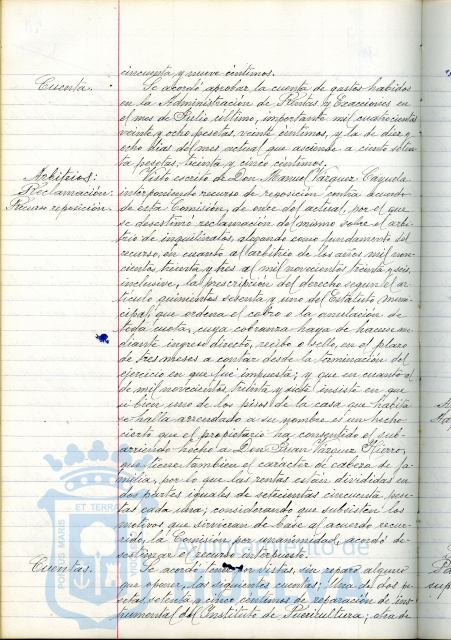 cincuenta y nueve céntimos.
Cuenta.
Se acordó aprobar la cuenta de gastos habidos
en la Administración de Rentas y Exacciones en
el mes de Julio último, importante mil cuatrocientas
veinte y ocho pesetas, veinte céntimos, y la de diez y
ocho días del mes actual que asciende a ciento seten-
ta pesetas, treinta y cinco céntimos.
Arbitrios:
Reclamación:
Recurso reposición.
Visto escrito de Don Manuel Vázquez Cayuela
interponiendo recurso de reposición contra acuerdo
de esta Comisión, de once del actual, por el que
se desestimó reclamación del mismo sobre el arbi-
trio de inquilinatos, alegando como fundamento del
recurso, en cuanto al arbitrio de los años mil nove-
cientos treinta y tres a mil novecientos treinta y seis,
inclusive, la prescripción del derecho según el ar-
tículo quinientos setenta y uno del Estatuto Muni-
cipal, que ordena el cobro o la anulación de
toda cuota, cuya cobranza haya de hacerse me-
diante ingreso directo, recibo o sello, en el plazo
de tres meses a contar desde la terminación del
ejercicio en que fué impuesta; y que en cuanto al
de mil novecientos treinta y siete insiste en que
si bien uno de los pisos de la casa que habita
se halla arrendado a su nombre es un hecho
cierto que el propietario ha consentido el sub-
arriendo hecho a Don Juan Vázquez Hierro,
que tiene también el caracter de cabeza de fa-
milia, por lo que las rentas están divididas en
dos partes iguales de setecientas cincuenta pese-
tas cada una; considerando que subsisten los
motivos que sirvieran de base al acuerdo recur-
rido, la Comisión, por unanimidad, acordó de-
sestimar el recurso interpuesto.
Cuentas.
Se acordó vistas, sin reparo alguno
que oponer, las siguientes cuentas: Una de dos pe-
setas, setenta y cinco céntimos de reparación de ins-
trumental del Instituto de Puericultura; otra de
PORTUS MARIS
ET TERRAE